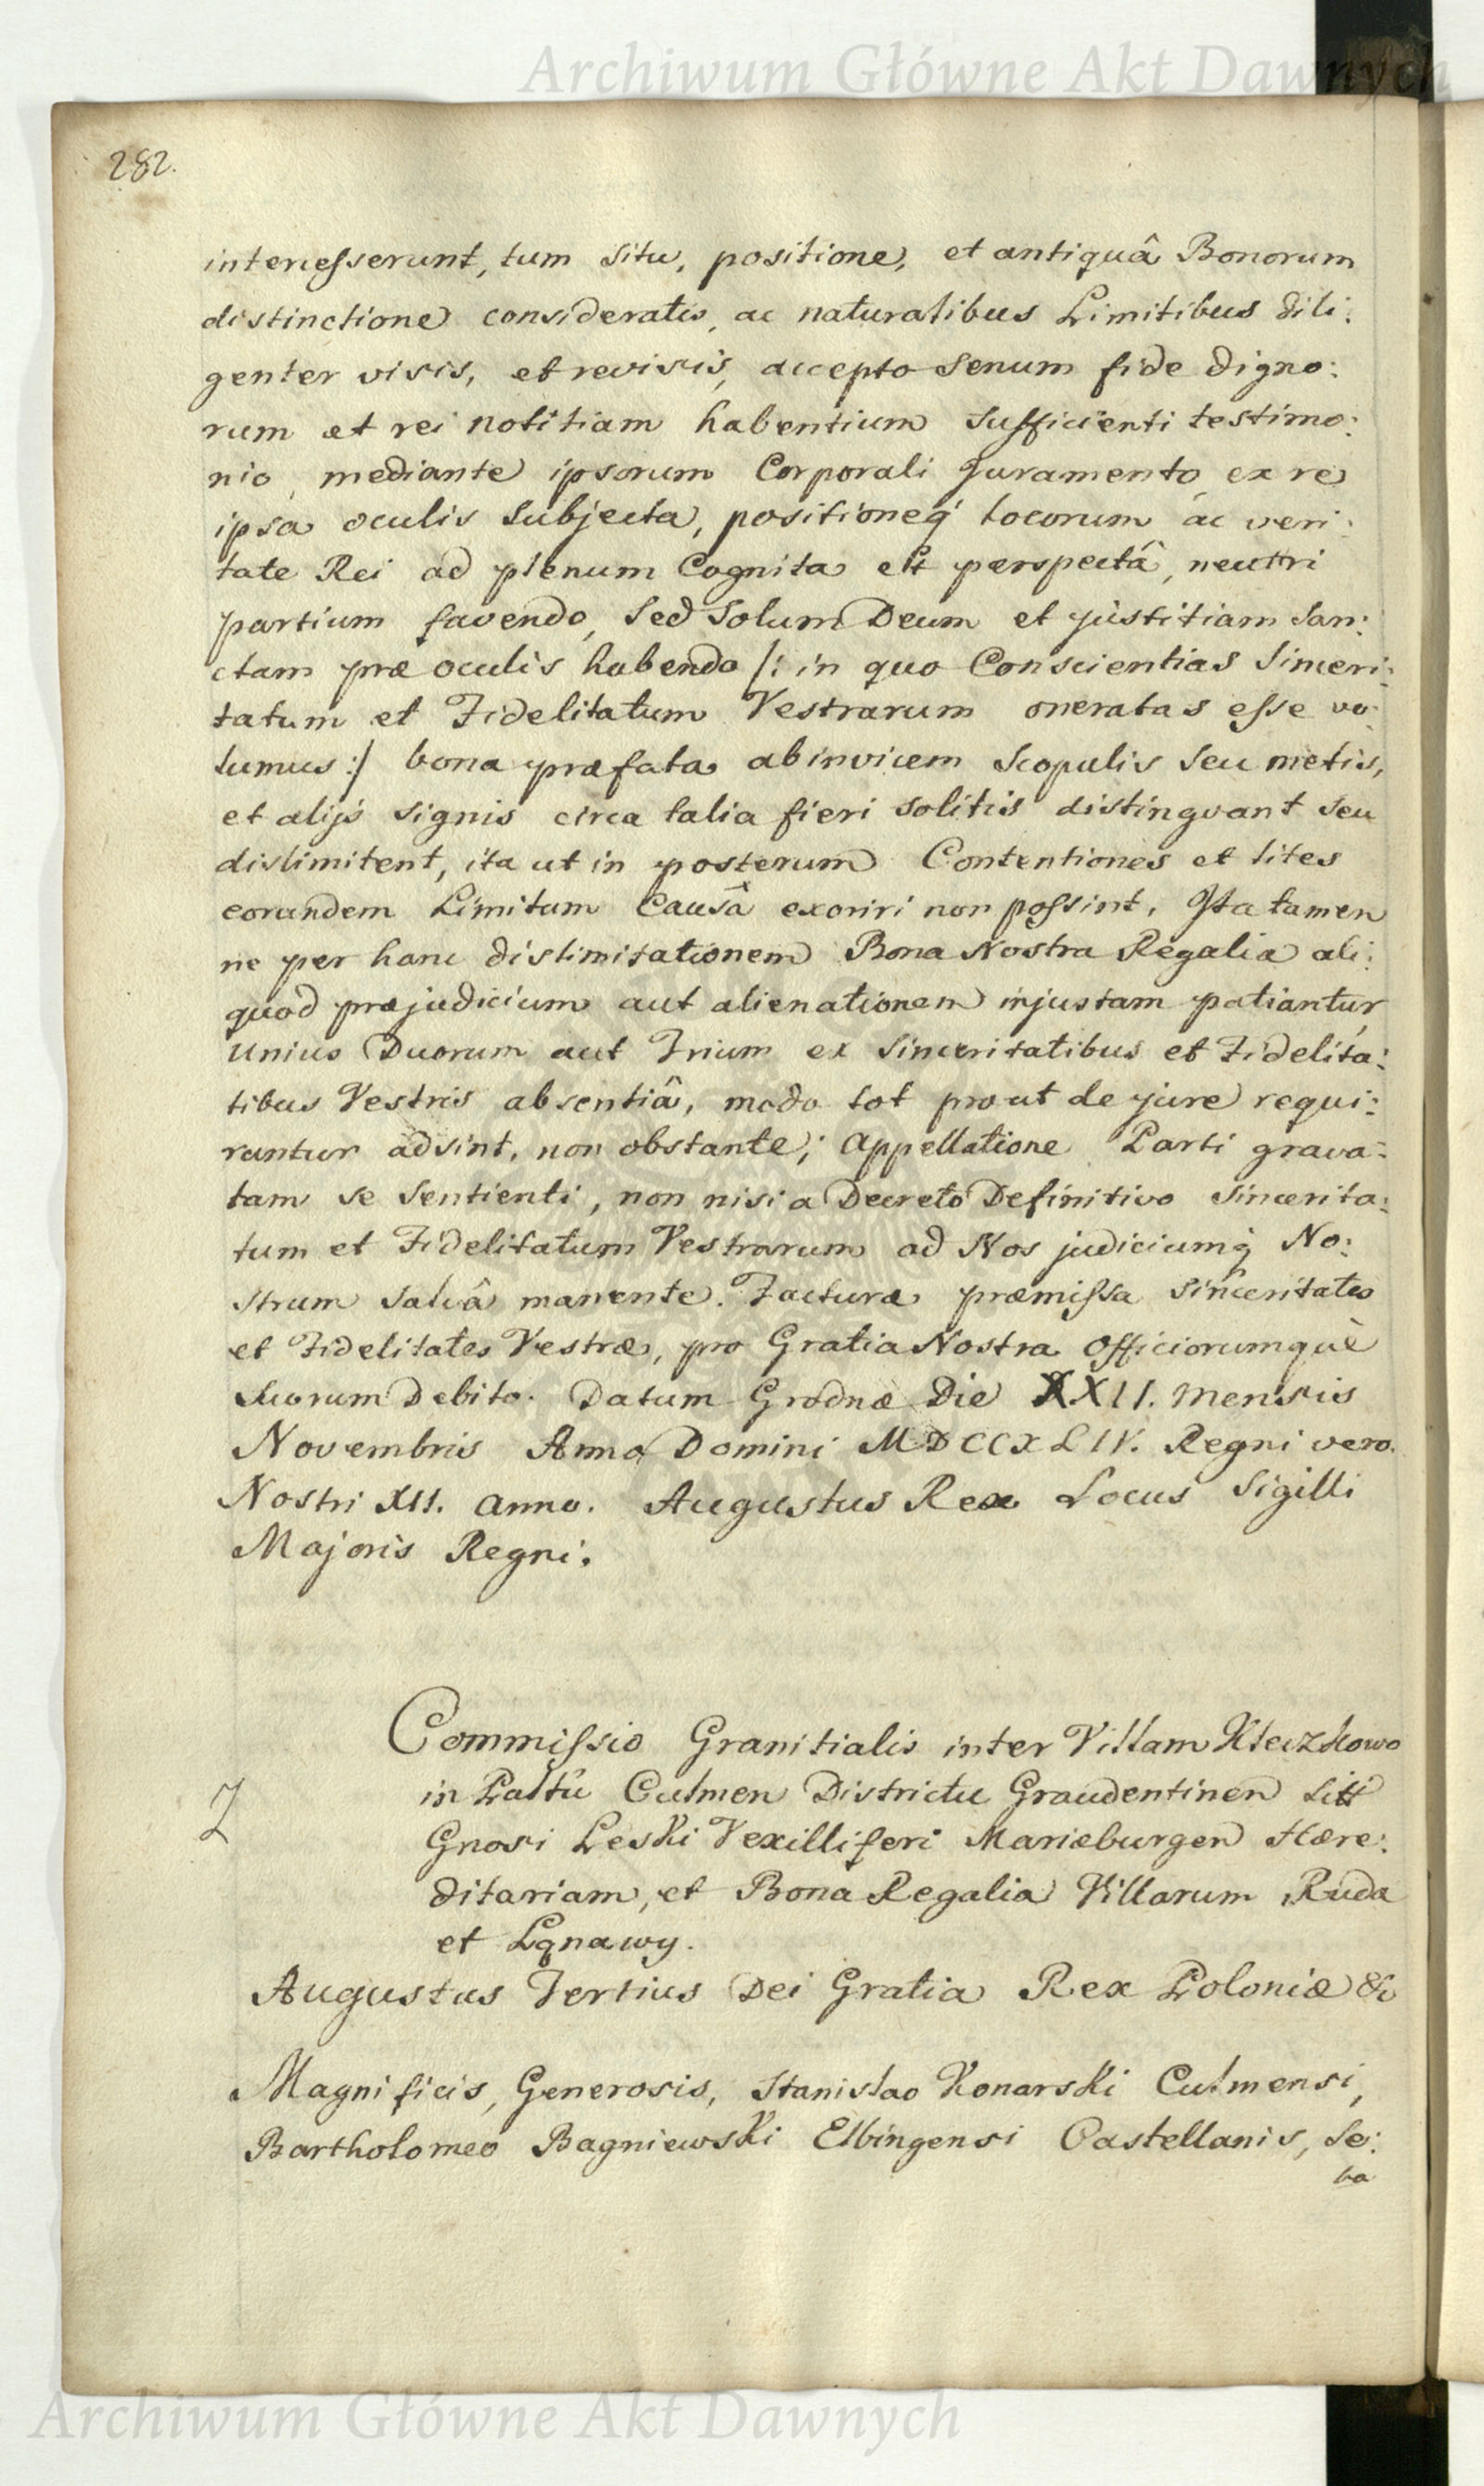 Archiwum Główne Akt Dawnych
282.
intercesserunt, tum situ, positione, et antiquâ Bonorum
distinctione consideratis, ac naturalibus Limitibus dili:
genter visis, et revisis, accepto Senum fide digno:
rum et rei notitiam habentium sufficienti testimo:
nio, mediante ipsorum Corporali Juramento, ex re
ipsa oculis subjecta, positioneq́ locorum ac veri:
tate Rei ad plenum Cognita et perspectâ, neutri
partium favendo, sed solum Deum et justitiam San:
ctam præ oculis habendo /: in quo Conscientias Sinceri:
tatum et Fidelitatum Vestrarum oneratas esse vo:
lumus :/ bona præfata abinvicem Scopulis seu metis,
et alijs signis circa talia fieri solitis distingvant seu
dislimitent, ita ut in posterum Contentiones et lites
eorundem Limitum Causâ exoriri non possint. Ita tamen
ne per hanc dislimitationem Bona Nostra Regalia ali:
quod præjudicium aut alienationem injustam patiantur
Unius Duorum aut Trium ex Sinceritatibus et Fidelita:
tibus Vestris absentiâ, modo tot prout de jure requi:
runtur adsint, non obstante; Appellatione Parti grava:
tam se sentienti, non nisi a Decreto Definitivo Sincerita:
tum et Fidelitatum Vestrarum ad Nos judiciumq́ No:
strum salvâ manente. Facturæ præmissa Sinceritates
et Fidelitates Vestræ, pro Gratia Nostra Officiorumquè
suorum Debito. Datum Grodnæ Die XXII. Mensis
Novembris Anno Domini MDCCXLIV. Regni vero
Nostri XII. Anno. Augustus Rex Locus Sigilli
Majoris Regni.
Commissio Granitialis inter Villam Kleczkowo
in Paltu Culmen Districtu Graudentinen sitt
Gnosi Leski Vexilliferi Mariæburgen Hære:
ditariam, et Bona Regalia Villarum Ruda
et Łąnawy.
Augustus Tertius Dei Gratia Rex Poloniæ &c
Magnificis, Generosis, Stanislao Konarski Culmensi,
Bartholomeo Bagniewski Elbingensi Castellanis, Se:
ba
Archiwum Główne Akt Dawnych